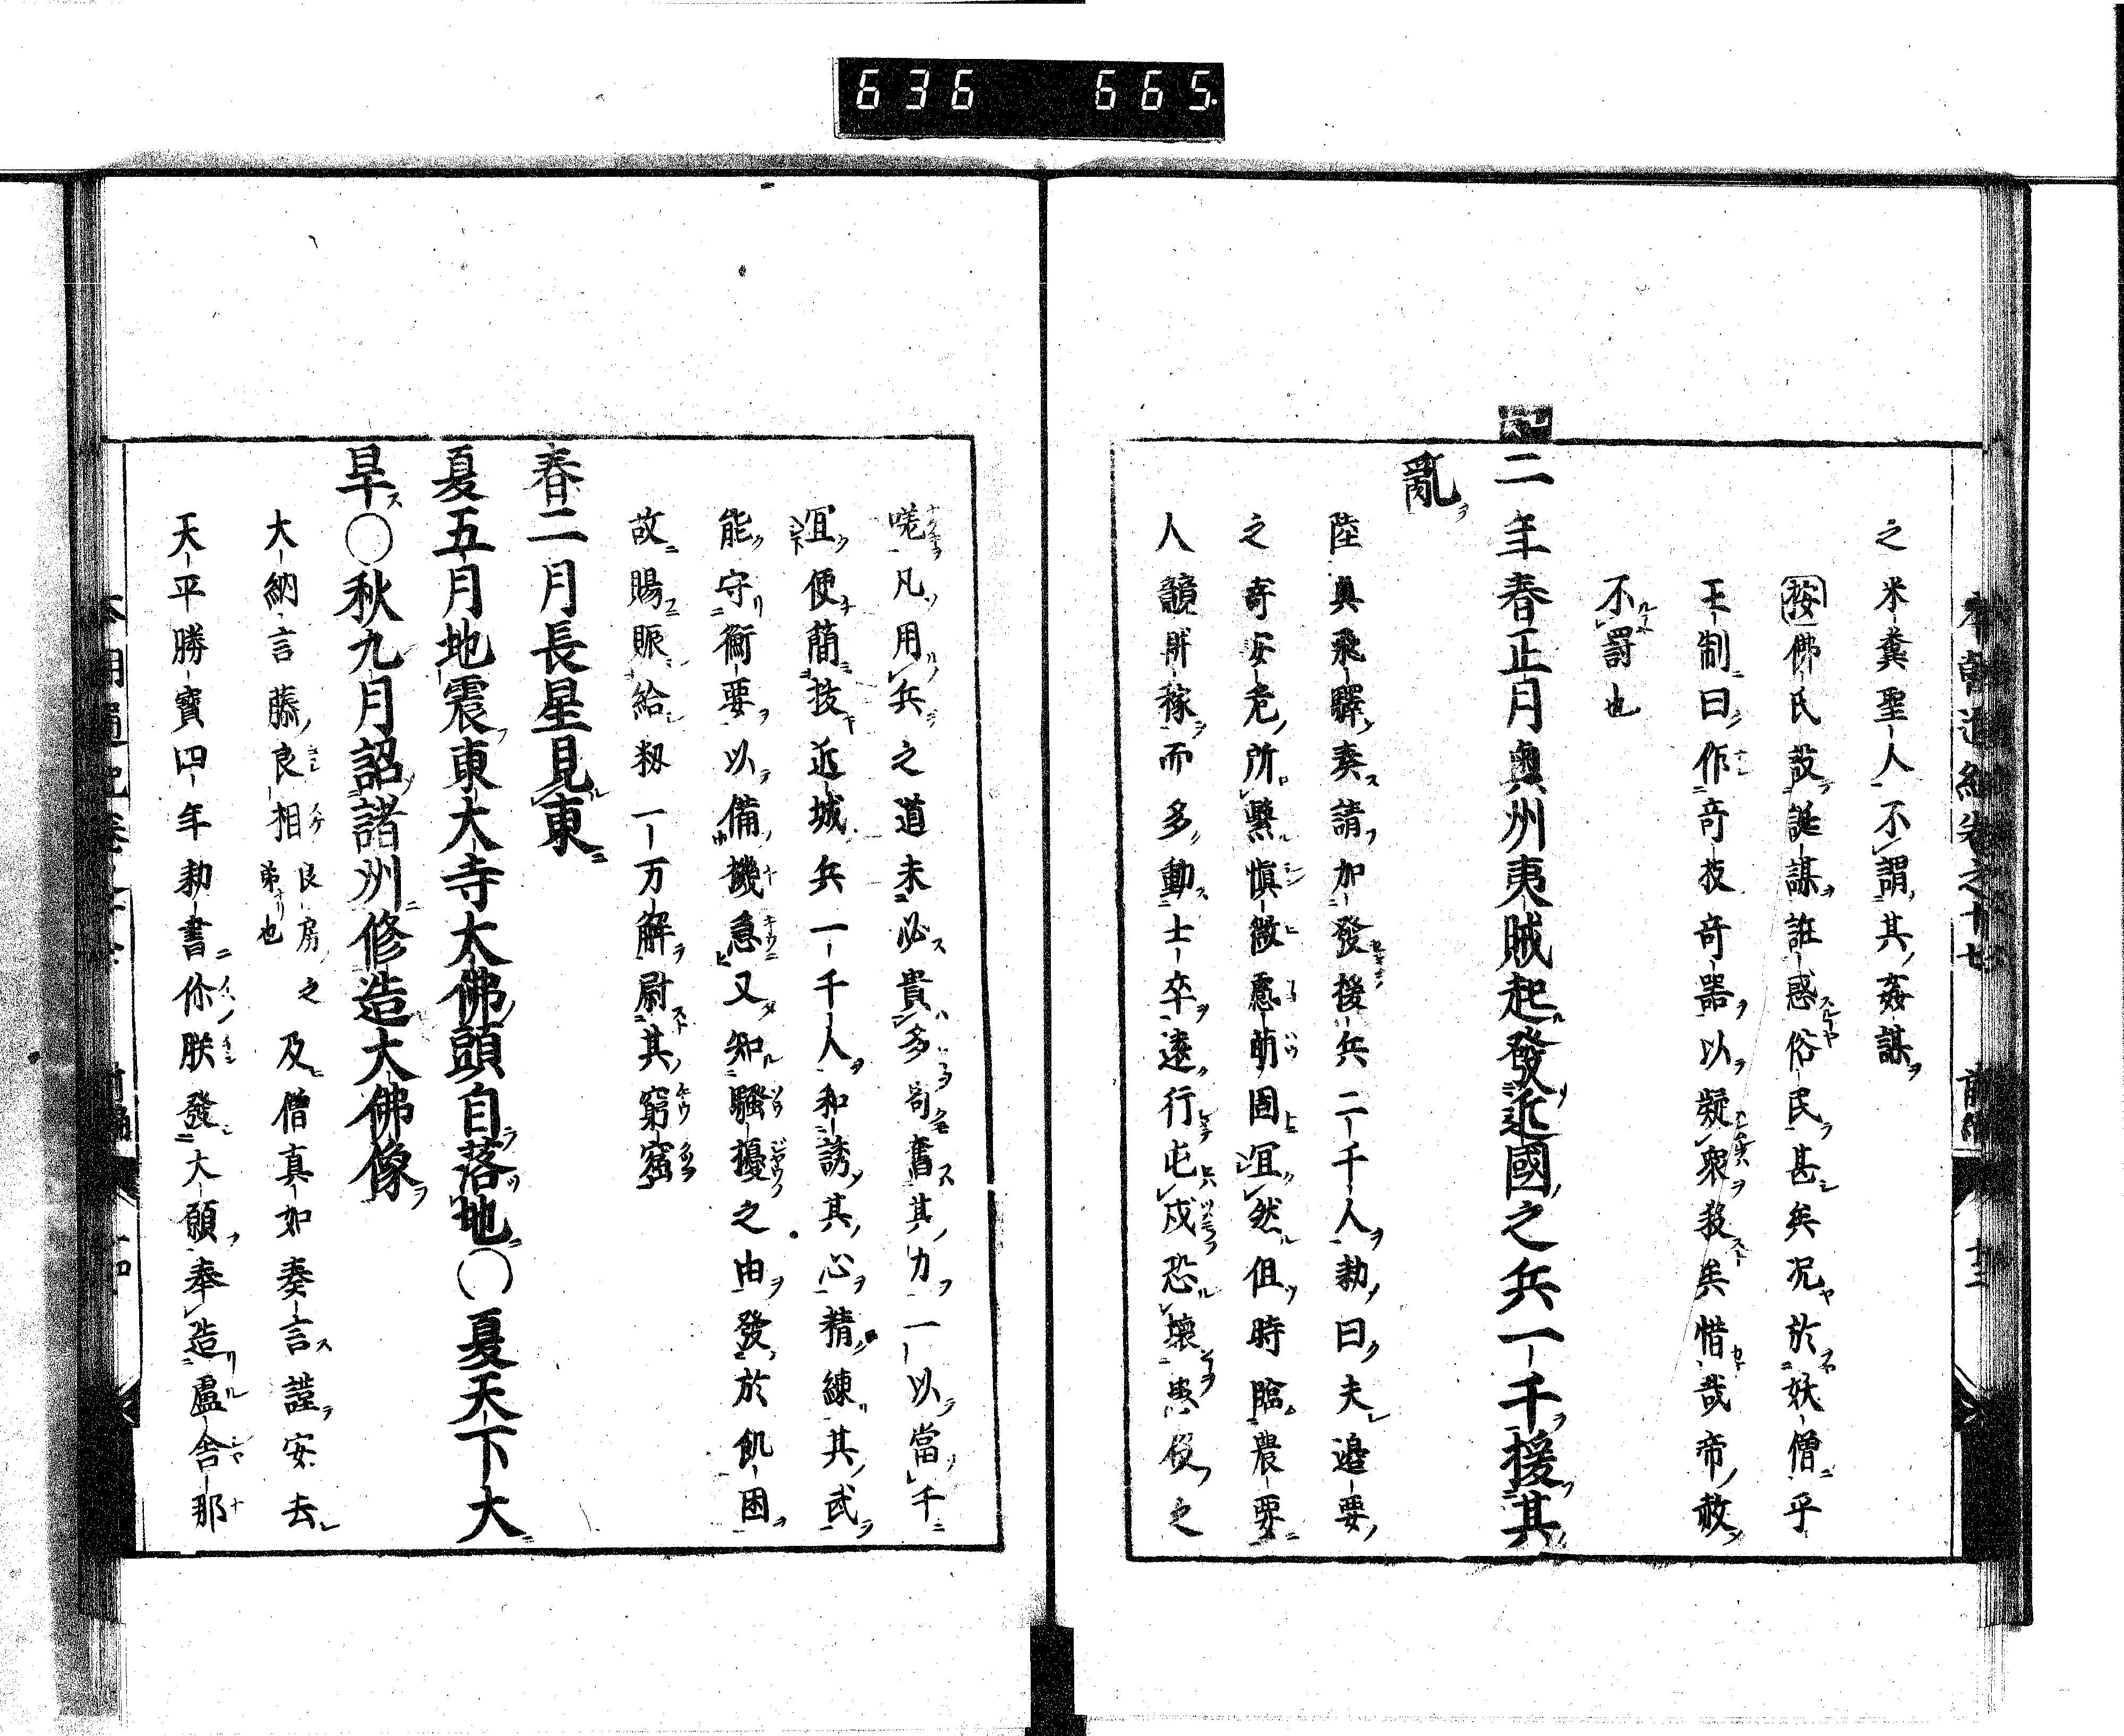 636 665
之米糞聖人不謂其姦謀
按佛氏設誕謀誑惑俗民甚矣況於妖僧乎
王制曰作奇技奇器以疑衆殺矣惜哉帝赦
不罰也
二年春正月奧州夷賊起發近國之兵一千援其
亂
陸奧飛驛奏請加發援兵二千人勅曰夫邊要
之寄安危所繫愼微慮萌固宜然但時臨農要
人競耕稼而多動士卒遠行屯戍恐壞與役之
嗟凡用兵之道未必貴多苟奮其力一以當千
宜便簡技近城兵一千人和誘其心精練其武
能守衝要以備機急又知騷擾之由發於飢困
故賜賑給籾一万解尉其窮窘
春二月長星見東
夏五月地震東大寺大佛頭自落地○夏天下大
旱○秋九月詔諸州修造大佛像
大納言藤良相良房之弟也及僧真如奏言謹安去
天平勝寶四年勅書偁朕發大願奉造盧舎那